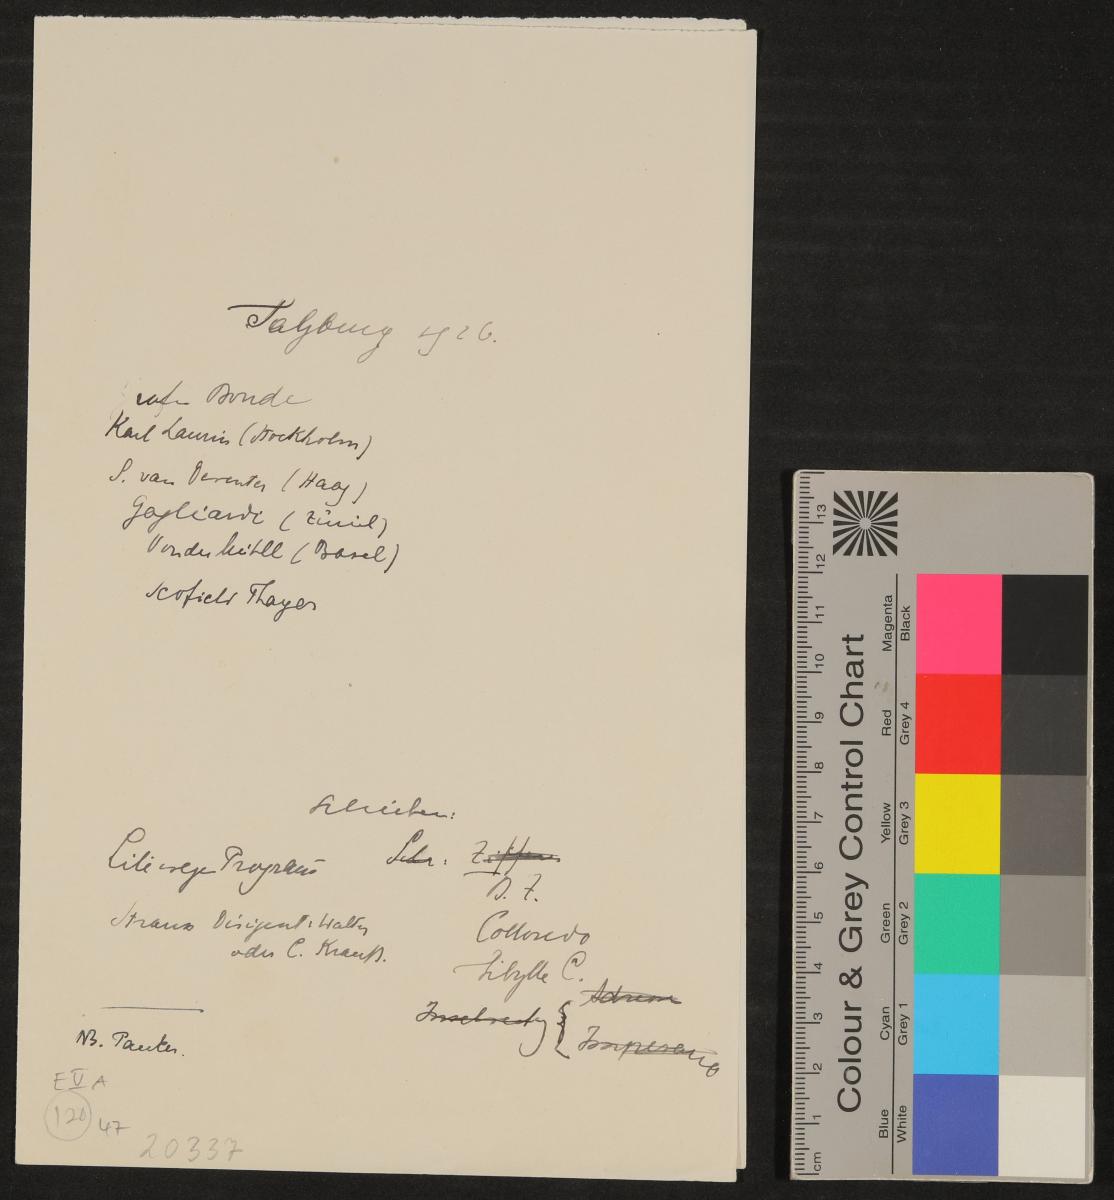 Salzburg 1926.
Bonde
Karl Laurin (Stockholm)
S. van Deventer (Haag)
Gagliardi (Zürich)
Vonder Mühll (Basel)
Scofield Thayer
Schreiben:
Programm
Schr:
D. Z.
Strauss Dirigent: Walter
oder C. Krauß.
Colloredo
Sibylle C.
NB. Pauker.
E V A
120 47
20337
Colour & Grey Control Chart
Blue Cyan Green Yellow Red Magenta
White Grey 1 Grey 2 Grey 3 Grey 4 Black
cm 1 2 3 4 5 6 7 8 9 10 11 12 13